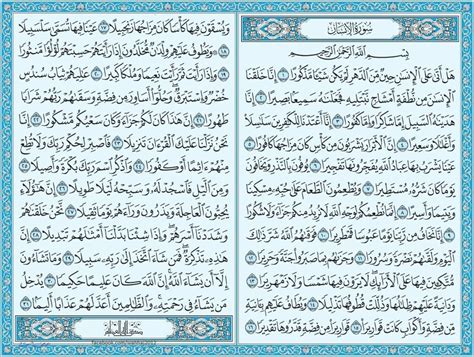 سُورَةُ الإِنسَانِ
بِسْمِ اللَّهِ الرَّحْمَٰنِ الرَّحِيمِ
هَلْ أَتَىٰ عَلَى الْإِنسَانِ حِينٌ مِّنَ الدَّهْرِ لَمْ يَكُن شَيْئًا مَّذْكُورًا ١ إِنَّا خَلَقْنَا
الْإِنسَانَ مِن نُّطْفَةٍ أَمْشَاجٍ نَّبْتَلِيهِ فَجَعَلْنَاهُ سَمِيعًا بَصِيرًا ٢ إِنَّا
هَدَيْنَاهُ السَّبِيلَ إِمَّا شَاكِرًا وَإِمَّا كَفُورًا ٣ إِنَّا أَعْتَدْنَا لِلْكَافِرِينَ سَلَاسِلَا
وَأَغْلَالًا وَسَعِيرًا ٤ إِنَّ الْأَبْرَارَ يَشْرَبُونَ مِن كَأْسٍ كَانَ مِزَاجُهَا كَافُورًا ٥
عَيْنًا يَشْرَبُ بِهَا عِبَادُ اللَّهِ يُفَجِّرُونَهَا تَفْجِيرًا ٦ يُوفُونَ بِالنَّذْرِ وَيَخَافُونَ
يَوْمًا كَانَ شَرُّهُ مُسْتَطِيرًا ٧ وَيُطْعِمُونَ الطَّعَامَ عَلَىٰ حُبِّهِ مِسْكِينًا
وَيَتِيمًا وَأَسِيرًا ٨ إِنَّمَا نُطْعِمُكُمْ لِوَجْهِ اللَّهِ لَا نُرِيدُ مِنكُمْ جَزَاءً وَلَا شُكُورًا
٩ إِنَّا نَخَافُ مِن رَّبِّنَا يَوْمًا عَبُوسًا قَمْطَرِيرًا ١٠ فَوَقَاهُمُ اللَّهُ شَرَّ ذَٰلِكَ
الْيَوْمِ وَلَقَّاهُمْ نَضْرَةً وَسُرُورًا ١١ وَجَزَاهُم بِمَا صَبَرُوا جَنَّةً وَحَرِيرًا
١٢ مُّتَّكِئِينَ فِيهَا عَلَى الْأَرَائِكِ لَا يَرَوْنَ فِيهَا شَمْسًا وَلَا زَمْهَرِيرًا ١٣
وَدَانِيَةً عَلَيْهِمْ ظِلَالُهَا وَذُلِّلَتْ قُطُوفُهَا تَذْلِيلًا ١٤ وَيُطَافُ عَلَيْهِم بِآنِيَةٍ
مِّن فِضَّةٍ وَأَكْوَابٍ كَانَتْ قَوَارِيرَا ١٥ قَوَارِيرَا مِن فِضَّةٍ قَدَّرُوهَا تَقْدِيرًا ١٦
وَيُسْقَوْنَ فِيهَا كَأْسًا كَانَ مِزَاجُهَا زَنجَبِيلًا ١٧ عَيْنًا فِيهَا تُسَمَّىٰ سَلْسَبِيلًا
١٨ وَيَطُوفُ عَلَيْهِمْ وِلْدَانٌ مُّخَلَّدُونَ إِذَا رَأَيْتَهُمْ حَسِبْتَهُمْ لُؤْلُؤًا
مَّنثُورًا ١٩ وَإِذَا رَأَيْتَ ثَمَّ رَأَيْتَ نَعِيمًا وَمُلْكًا كَبِيرًا ٢٠ عَالِيَهُمْ ثِيَابُ سُندُسٍ
خُضْرٌ وَإِسْتَبْرَقٌ وَحُلُّوا أَسَاوِرَ مِن فِضَّةٍ وَسَقَاهُمْ رَبُّهُمْ شَرَابًا
طَهُورًا ٢١ إِنَّ هَٰذَا كَانَ لَكُمْ جَزَاءً وَكَانَ سَعْيُكُم مَّشْكُورًا ٢٢ إِنَّا
نَحْنُ نَزَّلْنَا عَلَيْكَ الْقُرْآنَ تَنزِيلًا ٢٣ فَاصْبِرْ لِحُكْمِ رَبِّكَ وَلَا تُطِعْ
مِنْهُمْ آثِمًا أَوْ كَفُورًا ٢٤ وَاذْكُرِ اسْمَ رَبِّكَ بُكْرَةً وَأَصِيلًا ٢٥
وَمِنَ اللَّيْلِ فَاسْجُدْ لَهُ وَسَبِّحْهُ لَيْلًا طَوِيلًا ٢٦ إِنَّ هَٰؤُلَاءِ
يُحِبُّونَ الْعَاجِلَةَ وَيَذَرُونَ وَرَاءَهُمْ يَوْمًا ثَقِيلًا ٢٧ نَّحْنُ خَلَقْنَاهُمْ
وَشَدَدْنَا أَسْرَهُمْ وَإِذَا شِئْنَا بَدَّلْنَا أَمْثَالَهُمْ تَبْدِيلًا ٢٨ إِنَّ
هَٰذِهِ تَذْكِرَةٌ فَمَن شَاءَ اتَّخَذَ إِلَىٰ رَبِّهِ سَبِيلًا ٢٩ وَمَا تَشَاءُونَ
إِلَّا أَن يَشَاءَ اللَّهُ إِنَّ اللَّهَ كَانَ عَلِيمًا حَكِيمًا ٣٠ يُدْخِلُ
مَن يَشَاءُ فِي رَحْمَتِهِ وَالظَّالِمِينَ أَعَدَّ لَهُمْ عَذَابًا أَلِيمًا ٣١